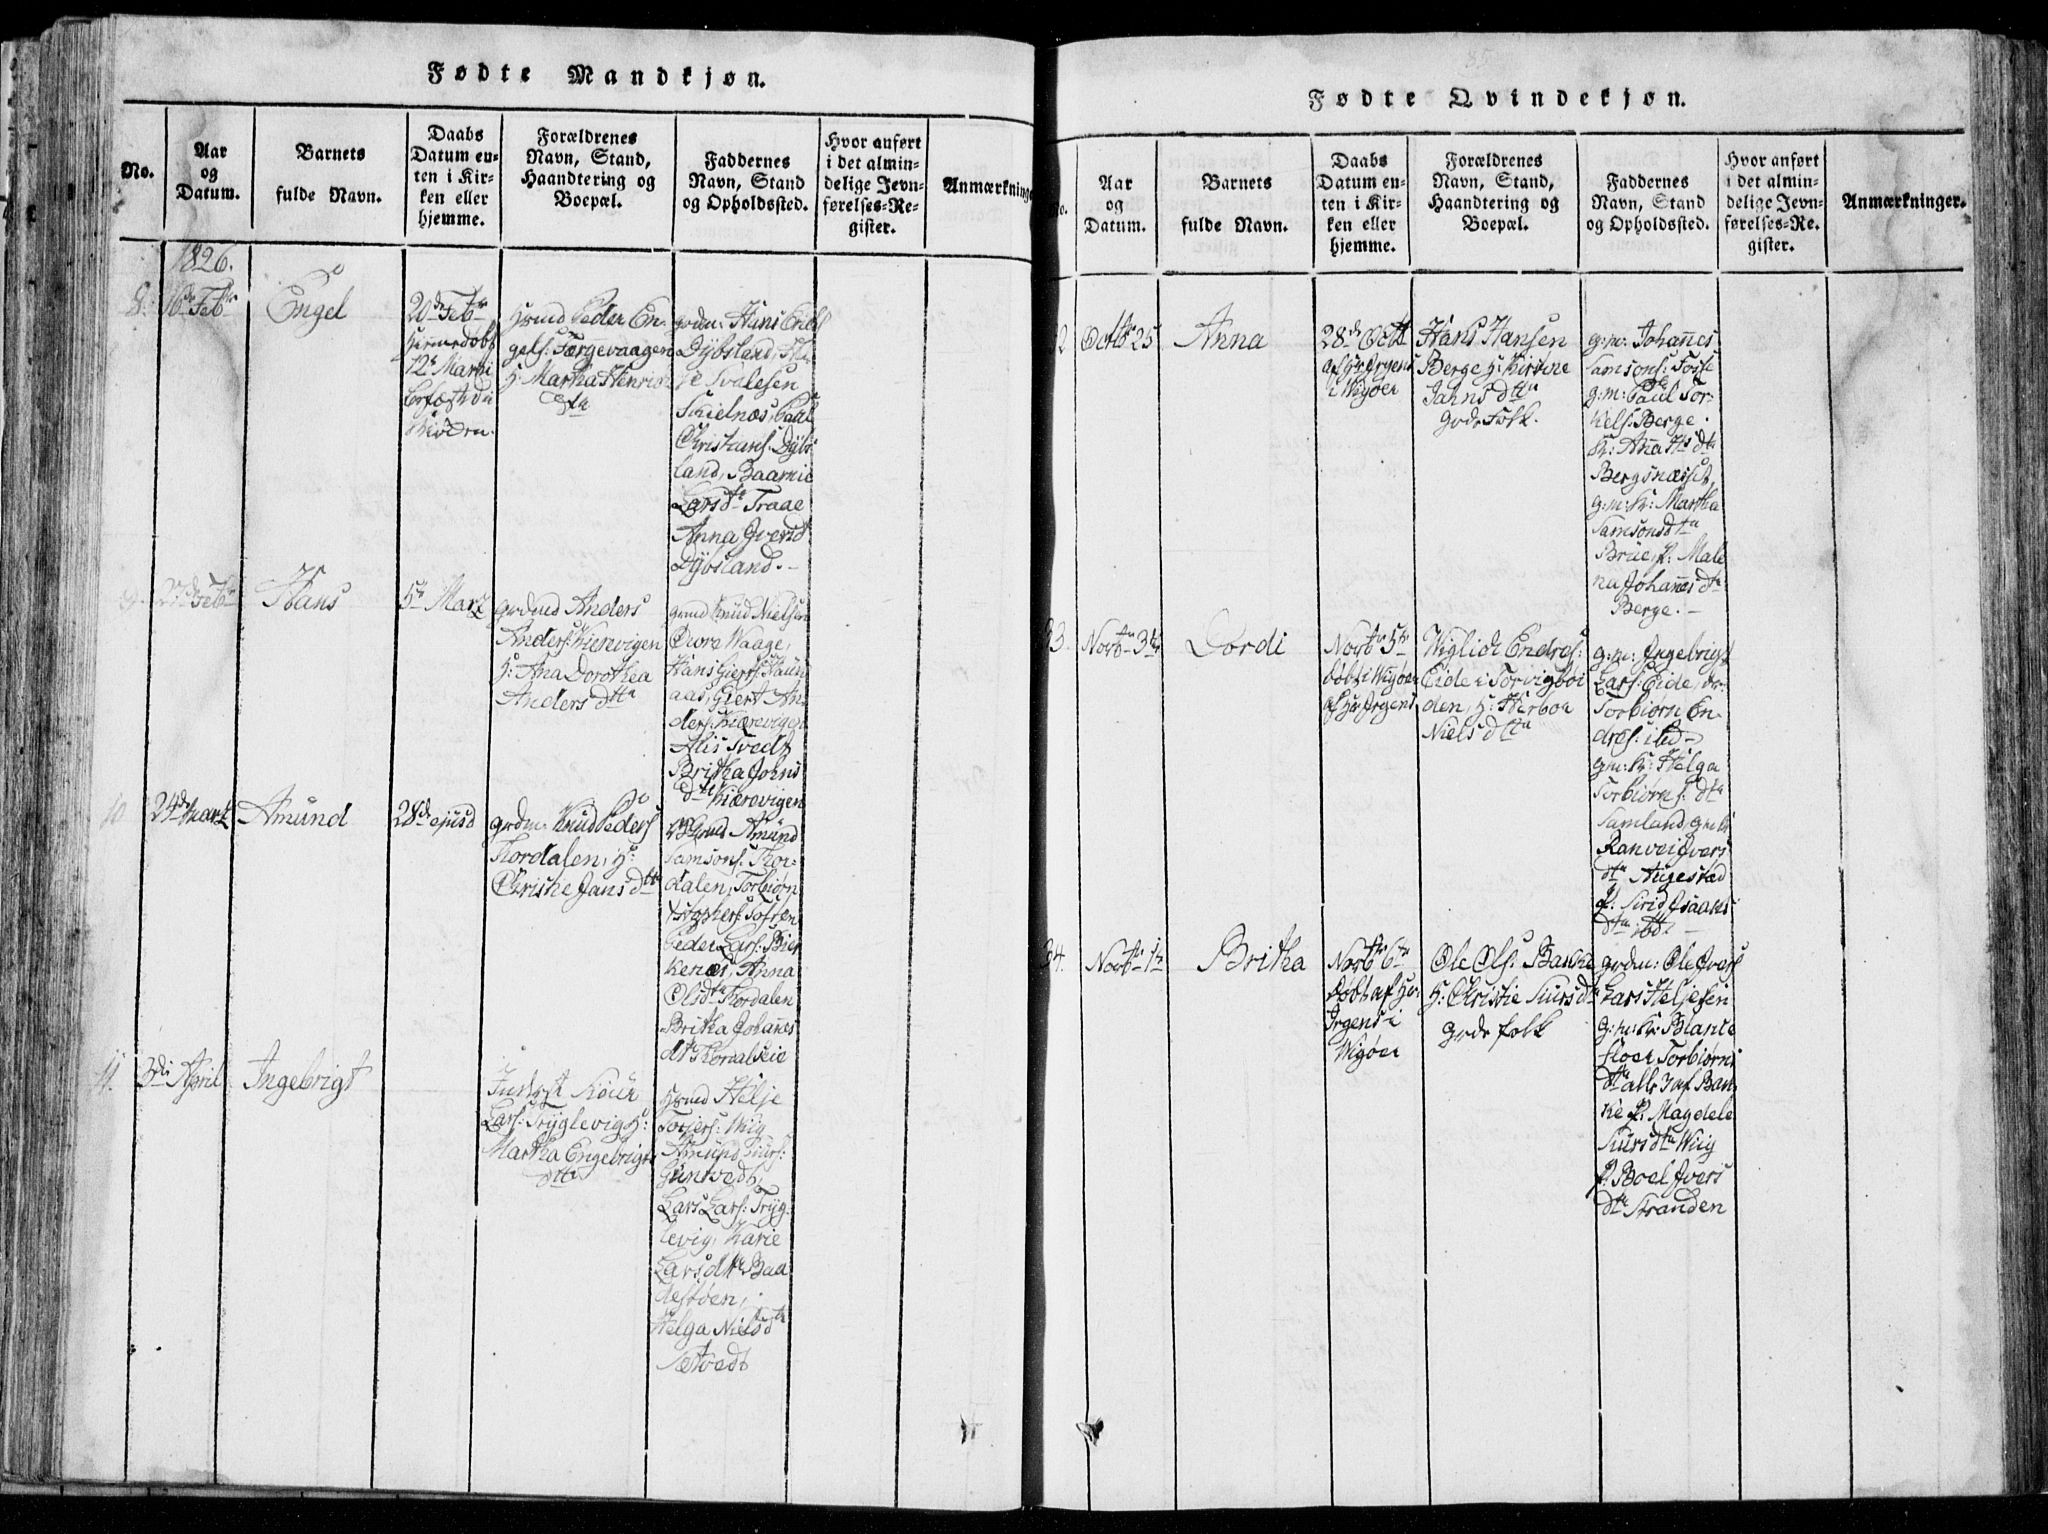 Fødte Mandkjøn.
No.
Aar
og
Datum.
Barnets
fulde Navn.
Daabs
Datum en-
ten i Kir-
ken eller
hjemme.
Forældrenes
Navn, Stand,
Haandtering og
Boepæl.
Faddernes
Navn, Stand
og Opholdssted.
Hvor anført
i det almin-
delige Jevn-
førelses-Re-
gister.
Anmærkninge
1826.
8. 16de Febr
Engel
20de Febr
hjemmedøbt
12te Martii
Husmd Peder En-
gels: Færgevaagen
H: Martha Henrics
dtr
grdm: Hans Erics
Dybsland,
Svalesen
Skielnæs, Paul
Christians: Dybs
land, Baarnie
Larsdtr Traae
Anna Iversd
Dybsland.
9. 27de Febr
Hans
5te Martz
grdmd Anders
Anders: Kierevigen
H: Ana Dorothea
Anders dtr
grmd Knud Nielsen
Øvre Waage,
Hans Giertss: Hauu
aas, Giert An
ders: Kierevigen
Alis Tvedt
Britha Johns
dtr Kierevigen
10 24de Martz
Amund
28de ejusd
grdm. Knud Peders
Thordalen, H:
Christie Jans dtr
Grmd Amund
Samsons: Thor-
dalen, Torbiørn
Peder Lars: Bier
kenæs, Anna
Olsdtr Thordalen
Britha Johannes
dtr
11. 3die April
Ingebrigt
Inderst Siour
Lars: Tryglevig H:
Martha Engebrigts
dtr
Husmd Helje
Torjers: Wiig
Amund Siurs:
Guntvedt,
Lars Lars: Tryg
levig, Karie
Larsdtr Baa
destøen,
Helga Nielsdtr
Sætvedt
Fødte Qvindekjøn.
No.
Aar
og
Datum.
Barnets
fulde Navn.
Daabs
Datum en-
ten i Kir-
ken eller
hjemme.
Forældrenes
Navn, Stand,
Haandtering og
Boepæl.
Faddernes
Navn, Stand
og Opholdssted.
Hvor anført
i det almin-
delige Jevn-
førelses-Re-
gister.
Anmærkninger.
32 Octbr 25
Anna
28de Octb
af Hr Irgens
i Wigøer
Hans Hansen
Berge H: Kirstine
Jahns dtr
Grdr Folk.
g:m: Johannes
Samsons: Fosse
g:m: Paul Tor-
kels: Berge.
K: Anna Hs dtr
Bergsnæsset,
g:m:k: Martha
Samsonsdtr
Brue, p: Male
na Johannes dtr
Berge.
33. Novbr 3die
Dordi
Novbr 5te
døbt i Wigøer
af Hr Irgens
Wiglich Endres:
Eide i Torvigboi
den, H: Herboe
Niels dtr
g:m: Ingebrigt
Lars: Eide, dr.
Torbiørn En-
dres: ibd
g:m:k: Helga
Torbiørns: dtr
Samland, g m k
Ranvei Ivers
dtr Augestad
p: Sirid Isaachs
dtr ibd
34. Novbr 1te
Britha
Novbr 6te
Døbt af Hr
Irgens i
Wigøer
Ole Ols: Banke
H: Christie Siurs dtr
Grdr folk
grdm: Ole Ivers
Lars Heljesen
g:m:k: Blante
floer Torbiørns
dtr alle 3 af Ban
ke p. Magdele
Siursdtr Wiig
p: Boel Ivers
dtr Stranden